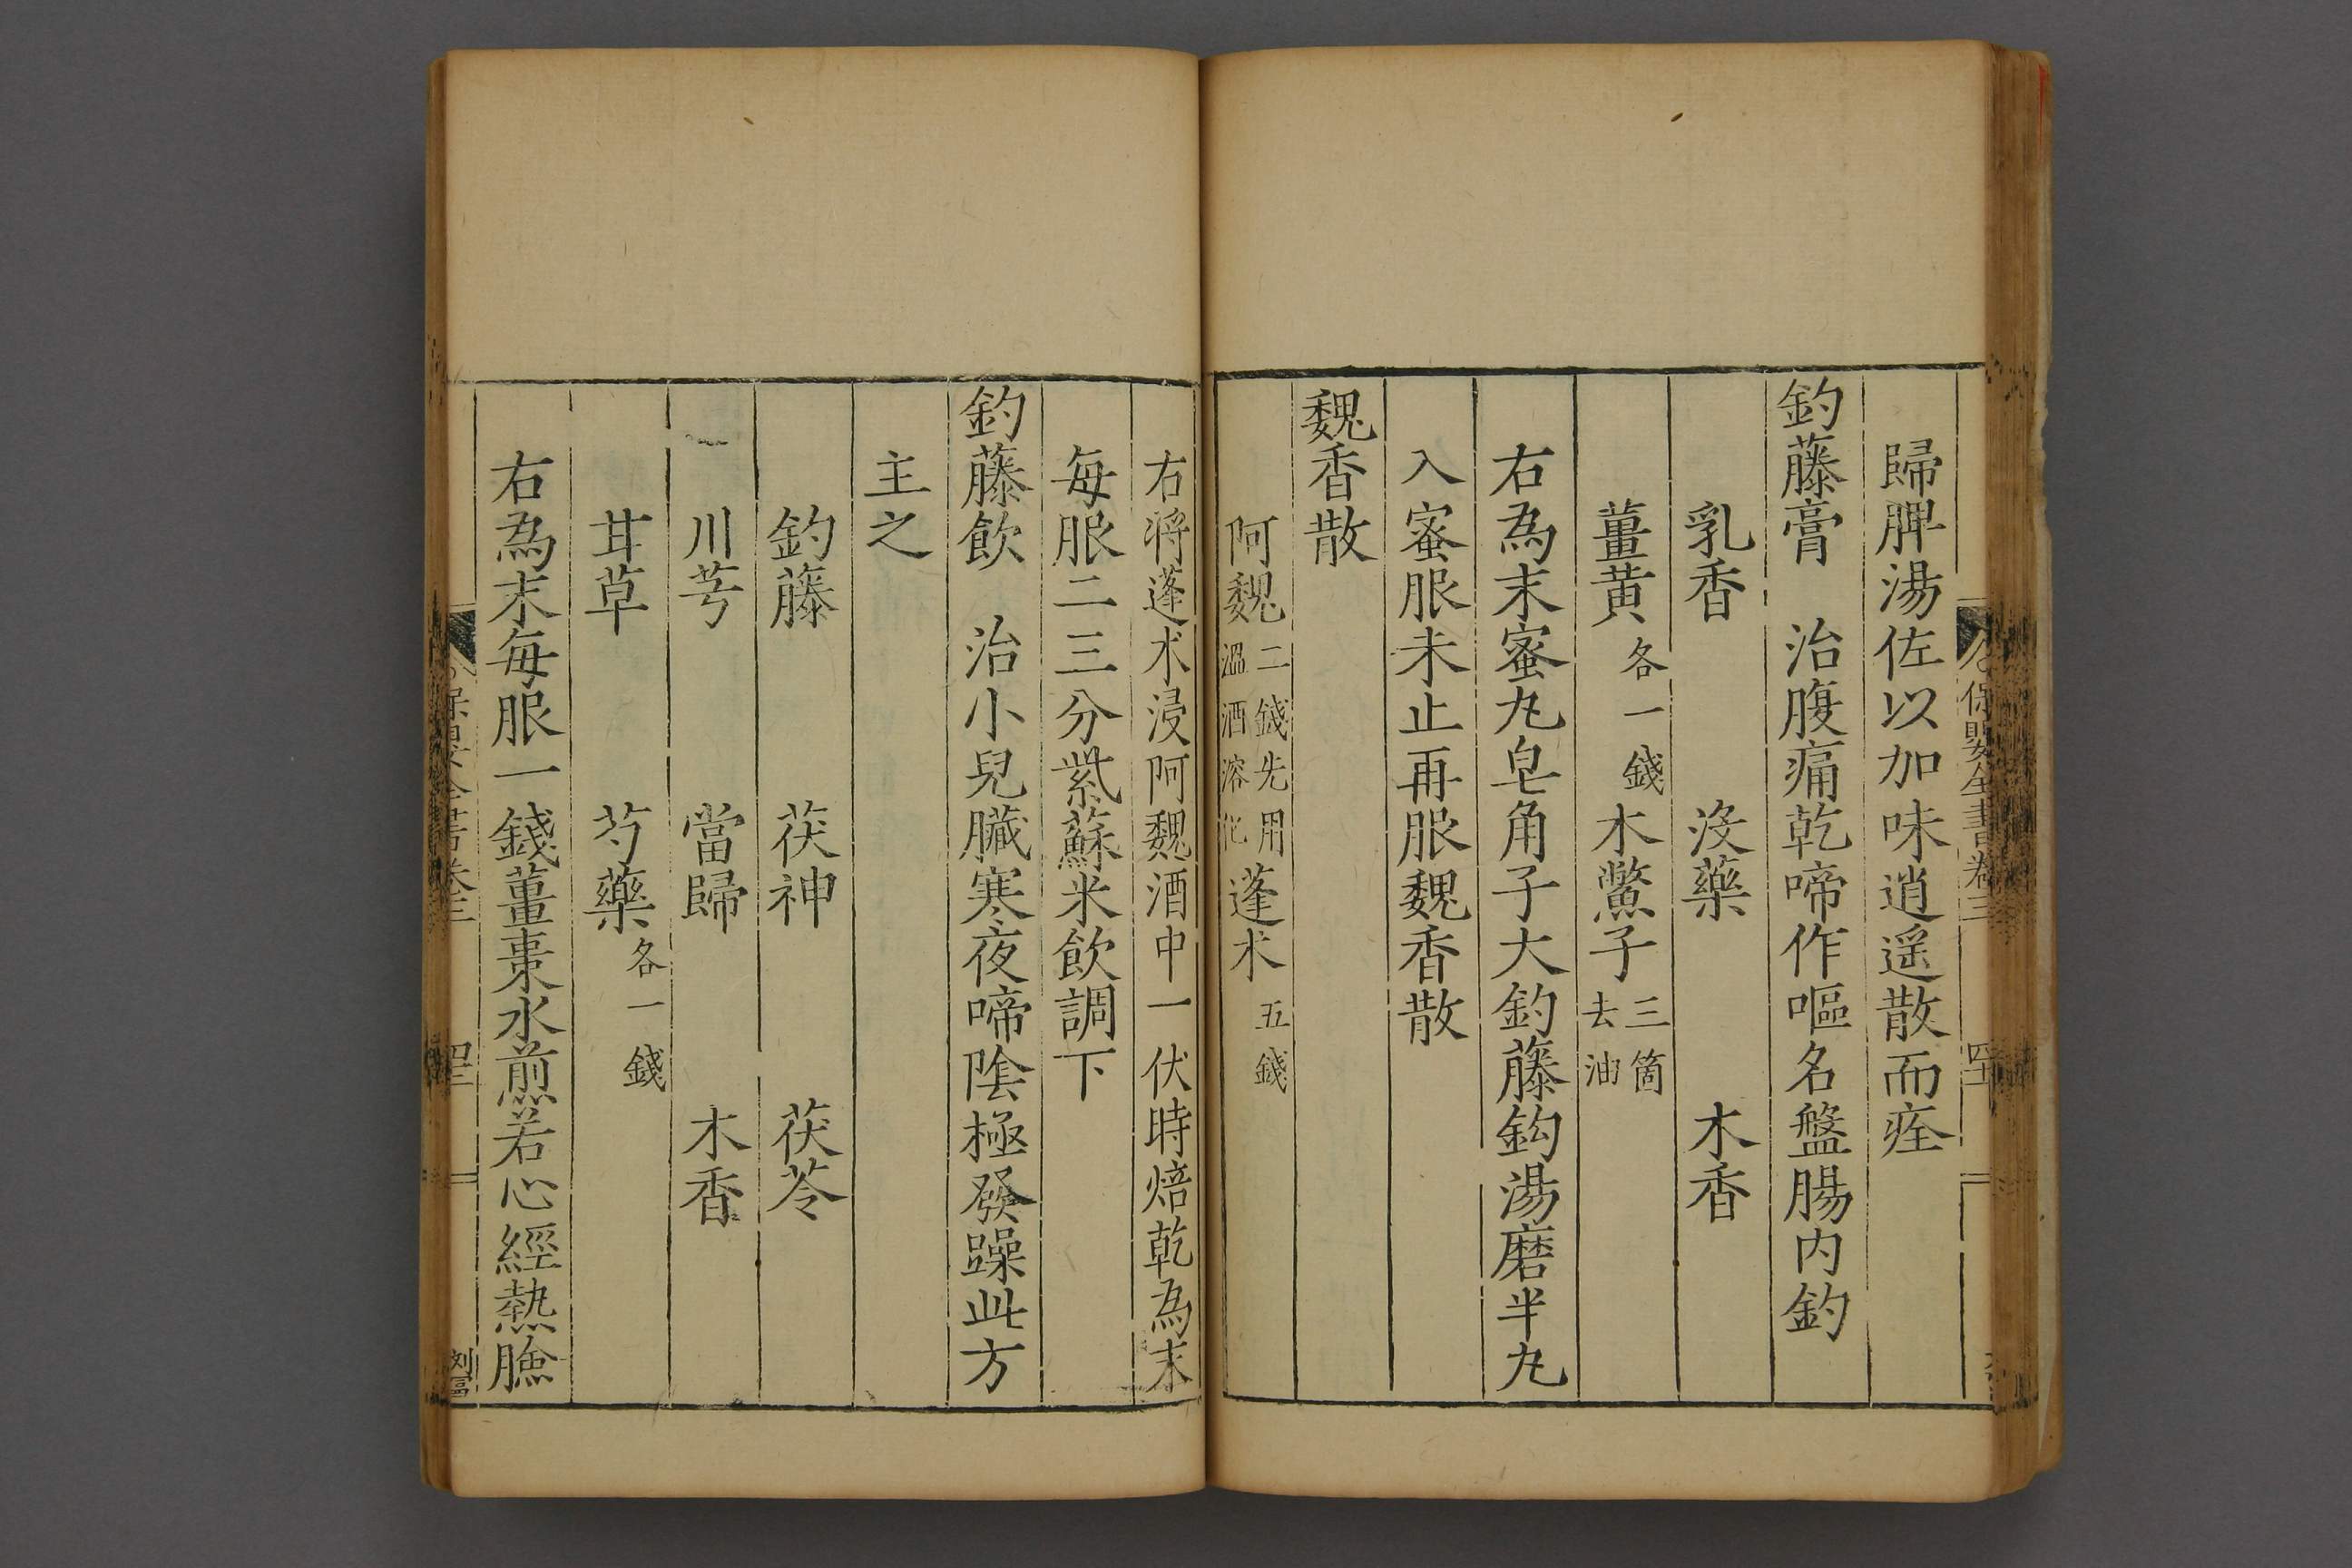 歸脾湯佐以加味逍遥散而痊
釣藤膏　治腹痛乾啼作嘔名盤腸内釣
乳香　沒藥　木香
薑黄各一錢　木鱉子三箇去油
右為末蜜丸皂角子大釣藤鈎湯磨半丸
入蜜服未止再服魏香散
魏香散
阿魏二錢先用溫酒溶化　蓬朮五錢
右将蓬朮浸阿魏酒中一伏時焙乾為末
每服二三分紫蘇米飲調下
釣藤飲　治小兒臟寒夜啼陰極發躁此方
主之
釣藤　茯神　茯苓
川芎　當歸　木香
甘草　芍藥各一錢
右為末每服一錢薑棗水煎若心經熱臉
保嬰全書卷三